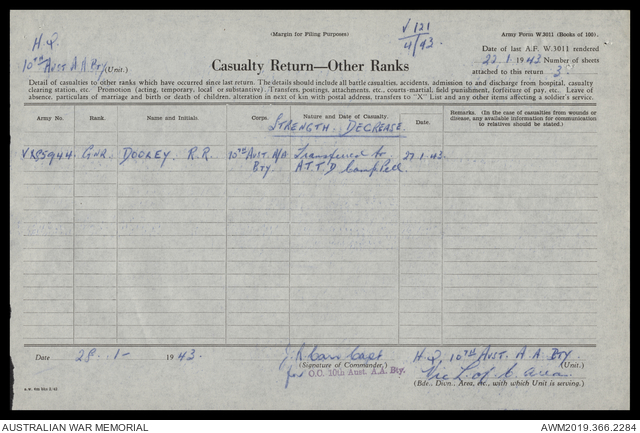 (Margin for Filing Purposes)
V 121
4/43.
Army Form W.3011 (Books of 100).
H.Q.
10th Aust A.A Bty (Unit.)
Date of last A.F. W.3011 rendered
22.1.1943 Number of sheets
attached to this return 3
Casualty Return—Other Ranks
Detail of casualties to other ranks which have occurred since last return. The details should include all battle casualties, accidents, admission to and discharge from hospital, casualty
clearing station, etc. Promotion (acting, temporary, local or substantive). Transfers, postings, attachments, etc., courts-martial, field punishment, forfeiture of pay, etc. Leave of
absence, particulars of marriage and birth or death of children, alteration in next of kin with postal address, transfers to "X" List and any other items affecting a soldier's service.
Army No. Rank. Name and Initials. Corps. Nature and Date of Casualty. Date. Remarks. (In the case of casualties from wounds or
disease, any available information for communication
to relatives should be stated.)
STRENGTH DECREASE
GNR. DOOLEY. R.R. 10th Aust. Transferred to 27.1.43.
Bty A.T.T.D Campbell.
Date 28.1-1943.
Capt
(Signature of Commander.)
for O.C. 10th Aust. A.A. Bty.
H.Q, 10th Aust. A.A. Bty
(Unit.)
Vic L. of C. Area
(Bde., Divn., Area, &c., with which Unit is serving.)
AUSTRALIAN WAR MEMORIAL
AWM2019.366.2284